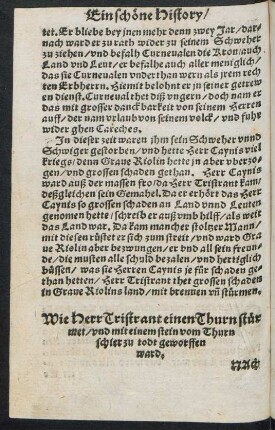 Ein schöne History/
tet. Er bliebe bey jnen mehr denn zwey Jar/dar-
nach ward er zu rath wider zu seinem Schweher
zu ziehen/vnd befalh Curneualen die Kron/auch
Land vnd Leut/er befalhe auch aller meniglich/
das sie Curneualen vnderthan wern als jrem rech
ten Erbherrn. Hiemit belohnt er jn seiner getrew
en dienst. Curneual thet diß vngern/doch nam er
das mit grosser danckbarkeit von seinem Herren
auff/der nam vrlaub von seinem volck/vnd fuhr
wider ghen Careches.
In dieser zeit waren ihm sein Schweher vnnd
Schwiger gestorben/vnd hette Herr Caynis viel
kriegs/denn Graue Riolin hette jn aber vberzo-
gen/vnd grossen schaden gethan. Herr Caynis
ward auß der massen fro/da Herr Tristrant kam/
deßgleichen sein Gemahel. Da er erhört das Herr
Caynis so grossen schaden an Land vnnd Leuten
genomen hette/schreib er auß vmb hilff/als weit
das Land war. Da kam mancher stoltzer Mann/
mit diesen rüstet er sich zum streit/vnd ward Gra
ue Riolin aber bezwungen/er vnd all sein freun-
de/die musten alle schuld bezalen/vnd hertiglich
büssen/was sie Herren Caynis je für schaden ge-
than hetten/Herr Tristrant thet grossen schaden
in Graue Riolins land/mit brennen vñ stürmen.
Wie Herr Tristrant einen Thurn stür
met/vnd mit einem stein vom Thurn
schier zu todt geworffen
ward.
Nach